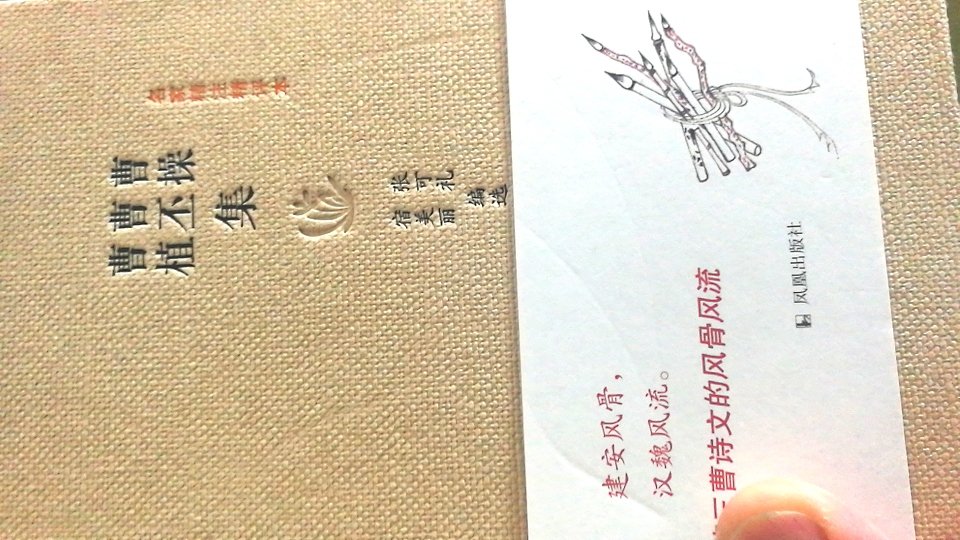 名家精注精评本
曹操
曹丕
曹植
集
张可礼
宿美丽
编选
建安风骨，
汉魏风流。
三曹诗文的风骨风流
凤凰出版社